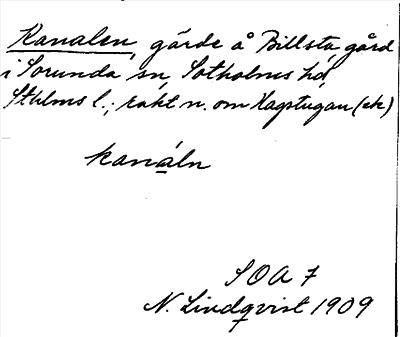 Kanalen, gärde å Billsta gård
i Sorunda sn, Sotholms hd,
Sthlms l.; rakt n. om Hagstugan (ek)
kanáln
SOA 7
N. Lindqvist 1909